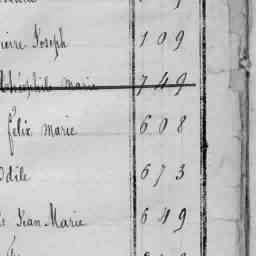 Pierre Joseph 109
Théophile Marie 749
Félix Marie 608
Odile 673
Jean Marie 649